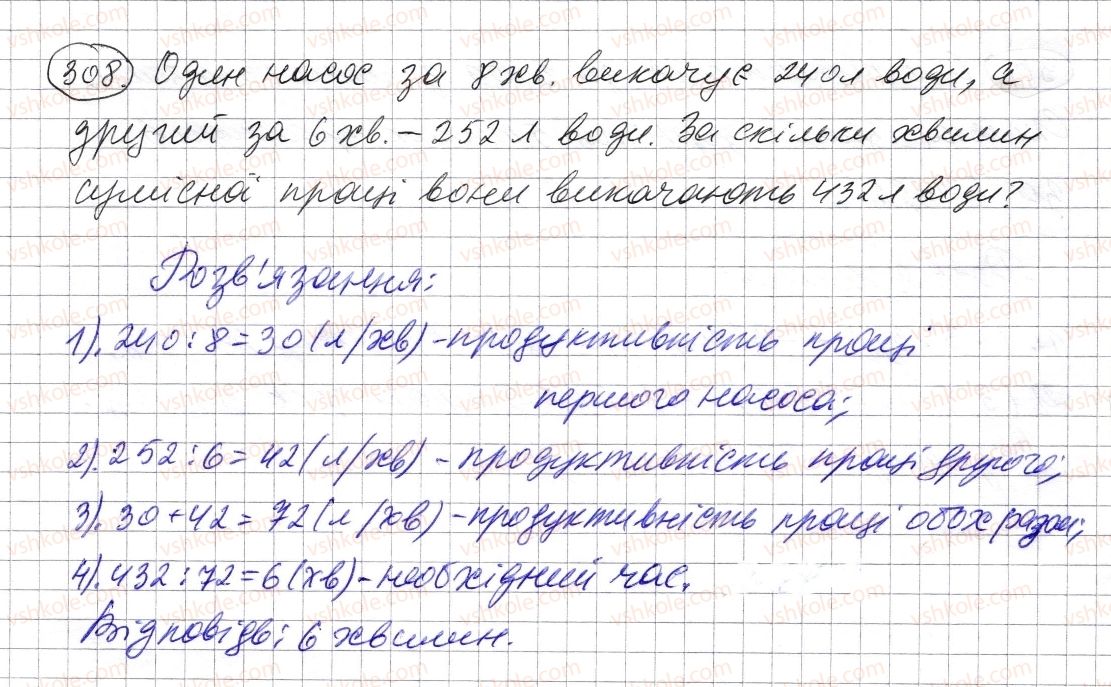 308. Один насос за 8 хв. викачує 240 л води, а
другий за 6 хв. – 252 л води. За скільки хвилин
сумісної праці вони викачають 432 л води?
Розв'язання:
1). 240 : 8 = 30 (л/хв) – продуктивність праці
першого насоса;
2). 252 : 6 = 42 (л/хв) – продуктивність праці другого;
3). 30 + 42 = 72 (л/хв) – продуктивність праці обох разом;
4). 432 : 72 = 6 (хв) – необхідний час.
Відповідь: 6 хвилин.